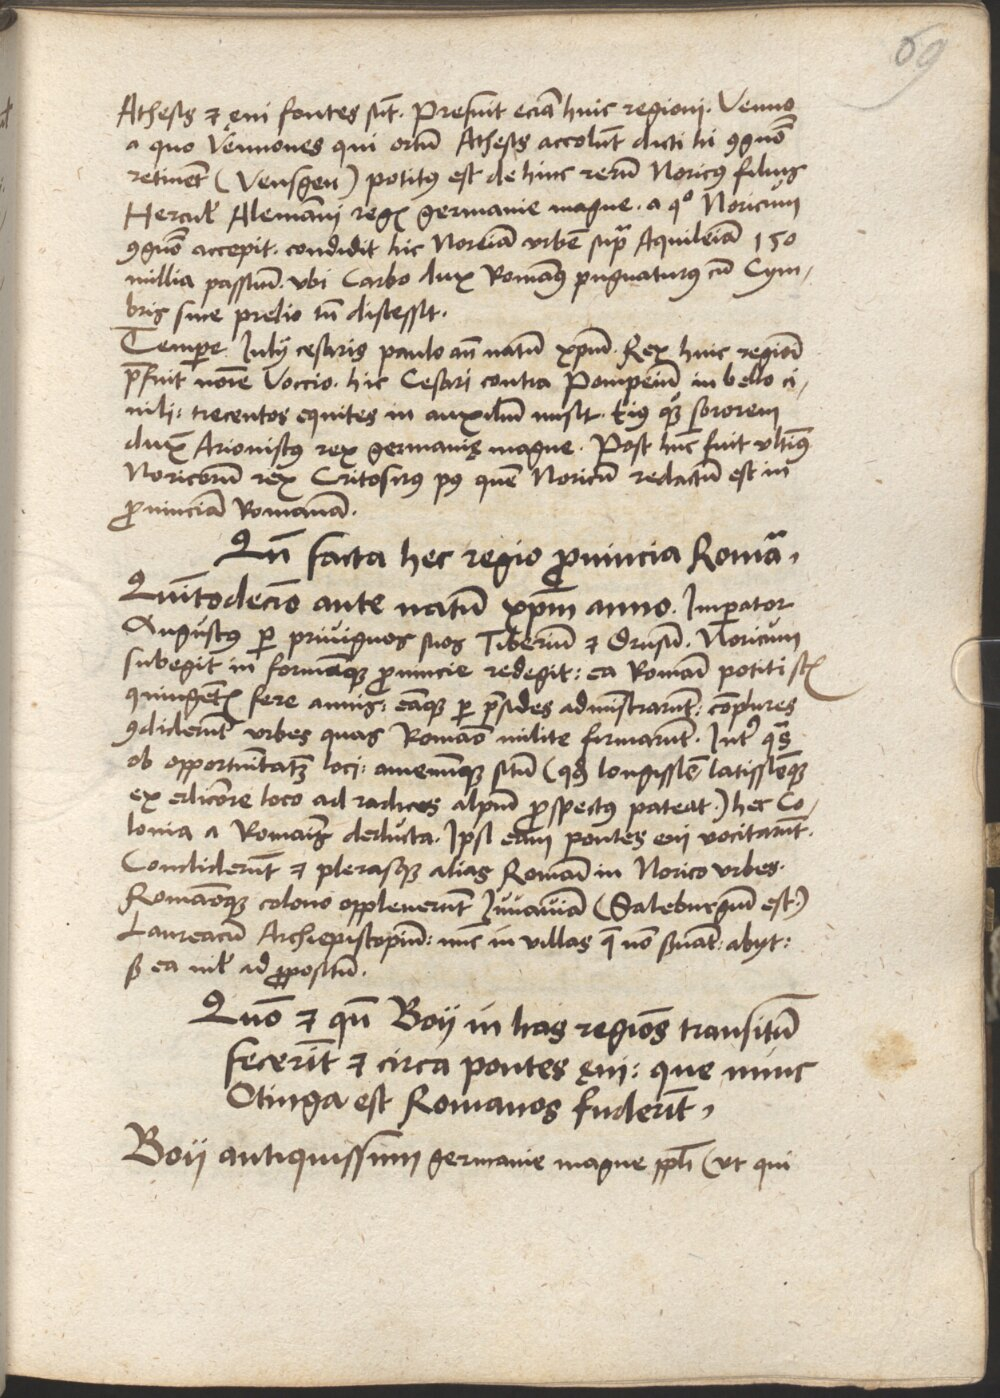 69
Athesis ⁊ ęni fontes sūt. Prefuit eciā huic regioni. Venno
a quo Vennones qui ortū Athesis accolūt dicti hi ꝯgnōē
retinēt (Vensgeu) potitꝰ est de hinc rerū Noricꝰ filius
Herculꝭ Alemāni regꝭ germanie magne. a qᵒ Noricum
ꝯgnōē accepit. condidit hic Noreiā vrbē supᵃ Aquileiā 150
millia passuū. vbi Carbo dux Romāꝰ pugnaturꝰ cū Cym,
bris sine prelio tn̄ discessit.
Temꝑe Iulij cesaris paulo an̄ natū xp̄m. Rex huic regiōi
p̄fuit noīe Voccio. hic Cesari contra Pompeiū in bello ci,
uili: trecentos equites in auxiliū misit. Eiꝰ qꝫ sororem
duxꝭ Arionistꝰ rex germanię magne. Post hūc fuit vltimꝰ
Noricorū rex Critosirus pꝰ quē Noricū redactū est in
ꝓuinciā Romanā.
Qn̄ facta hec regio ꝓuincia Romāᵃ,
Quītodecīo ante natū xp̄m anno. Imꝑator
Augustꝰ ꝑ priuignos suos Tiberiū ⁊ Drusū. Noricum
subegit in formāqꝫ ꝓuincie redegit: ea Romāi potiti sūt
quingētꝭ fere annis: eāqꝫ ꝑ p̄sides admīstrarūt: cōplures
ꝯdiderūt vrbes quas Romāo milite firmarūt. Intꝰ qᵃs
ob opportunitatē loci: amenūqꝫ sitū (qᵃ longissīe latissīeqꝫ
ex editiore loco ad radices alpiū ꝓspectꝰ pateat.) hec Co,
lonia a Romāis deducta. Ipsi eam pontes eni vocitarūt.
Condiderūt ⁊ plerasqꝫ alias Romāi in Norico vrbes.
Romāoqꝫ colono oppleuerūt Iuuauiā (Saleburgiū est.)
Laureacū Archiepiscopiū: nūc in villas q̄ nō suāt: abijt:
sꝫ ea nil ad ꝓpositū.
Quō ⁊ qn̄ Boij in has regiōs transitū
fecerīt ⁊ circa pontes ęni: que nunc
Otinga est Romanos fuderīt,
Boij antiquissimi germanie magne ppl̄i (vt qui